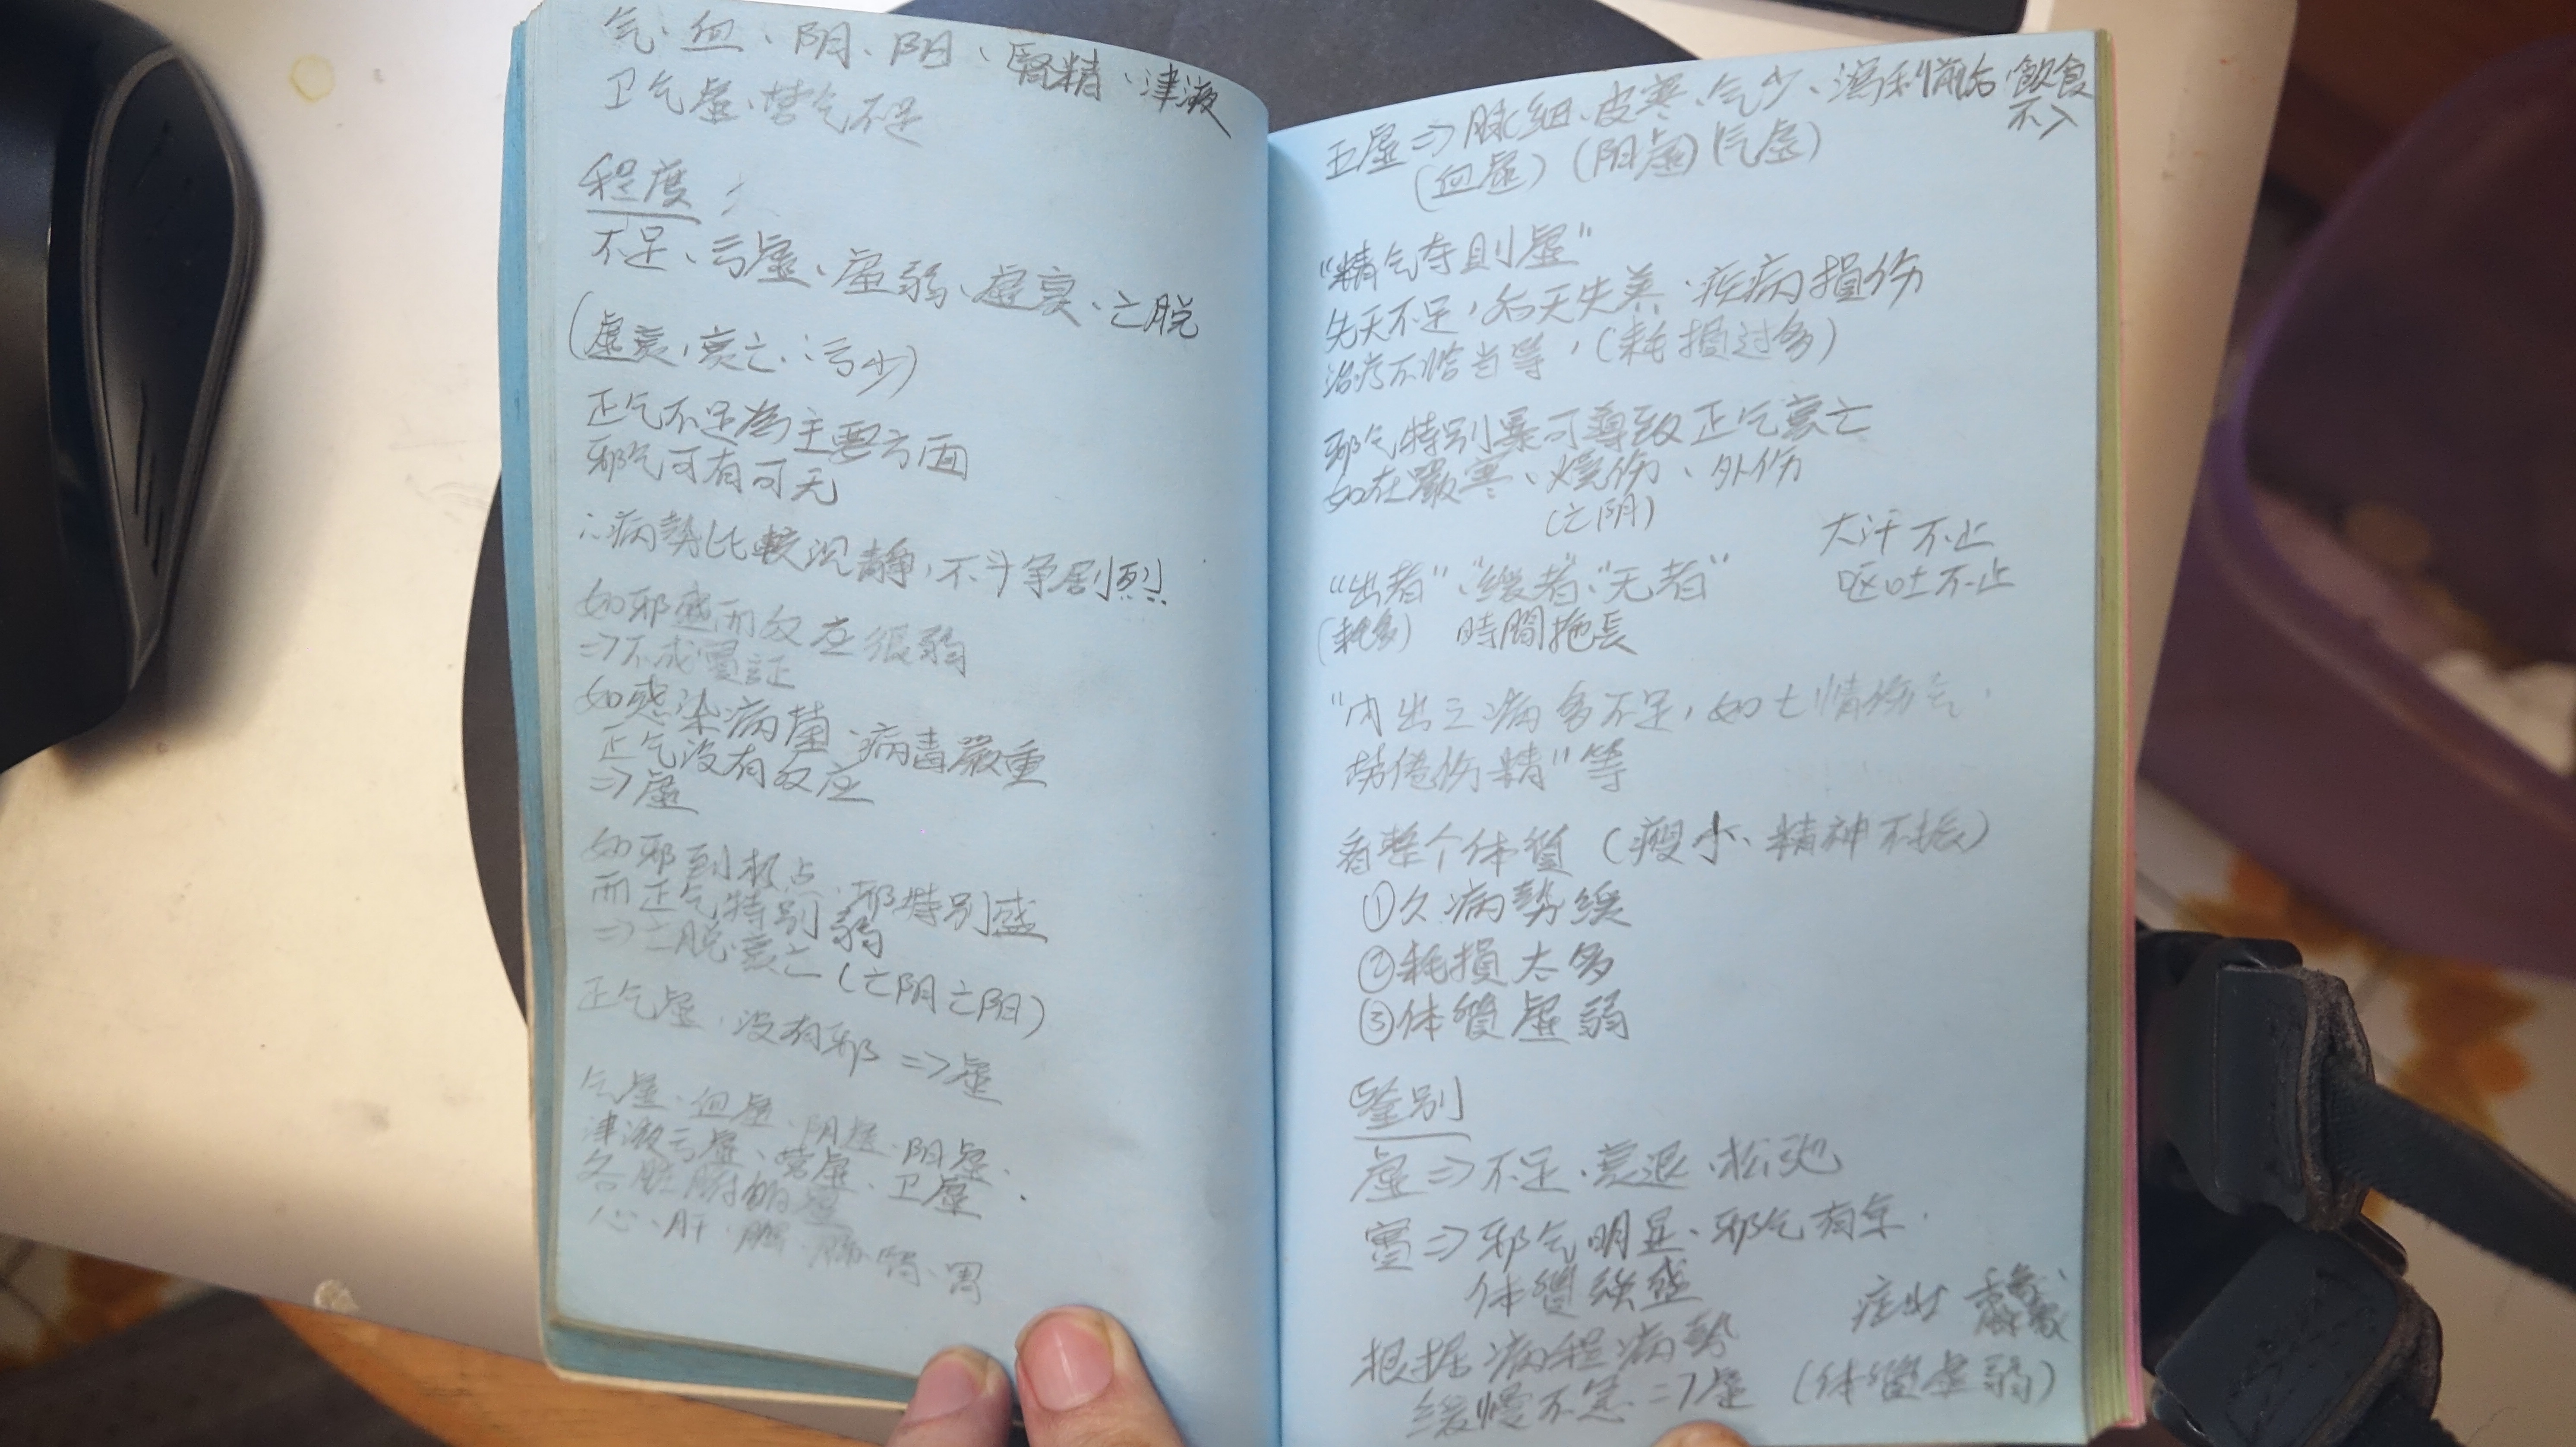 气、血、阴、阳、腎精、津液
卫气虚、营气不足
程度
不足、亏虚、虚弱、虚衰、亡脱
(虚衰,衰亡、亏少)
正气不足為主要方面
邪气可有可无
∴病勢比較沉静,不斗争剧烈
如邪盛而反应很弱
⇒不成實証
如感染病菌、病毒嚴重
正气没有反应
⇒虚
如邪到极点
而正气特别弱,邪特别盛
⇒亡脱、衰亡(亡阴亡阳)
正气虚、没有邪⇒虚
气虚、血虚、阴虚、阳虚、
津液亏虚、营虚、卫虚、
各脏腑的虚
心、肝、脾、肺、腎、胃
五虚⇒脉细、皮寒、气少、瀉利前后、飲食
不入
(血虚)(阳虚)(气虚)
“精气夺则虚”
先天不足,后天失养、疾病損伤
治疗不恰当等,(耗損过多)
邪气特别暴可導致正气衰亡
如在嚴寒、烧伤、外伤
(亡阴)
大汗不止
呕吐不止
“出者”、“缓者”、“无者”
(耗多) 時間拖長
“内出之病多不足,如七情伤气、
劳倦伤精”等
看整个体質(瘦小、精神不振)
①久病勢缓
②耗損太多
③体質虚弱
鑒别
虚⇒不足、衰退、松弛
實⇒邪气明显、邪气有余.
体質強盛
根据病程病勢
缓慢不急⇒虚(体質虚弱)